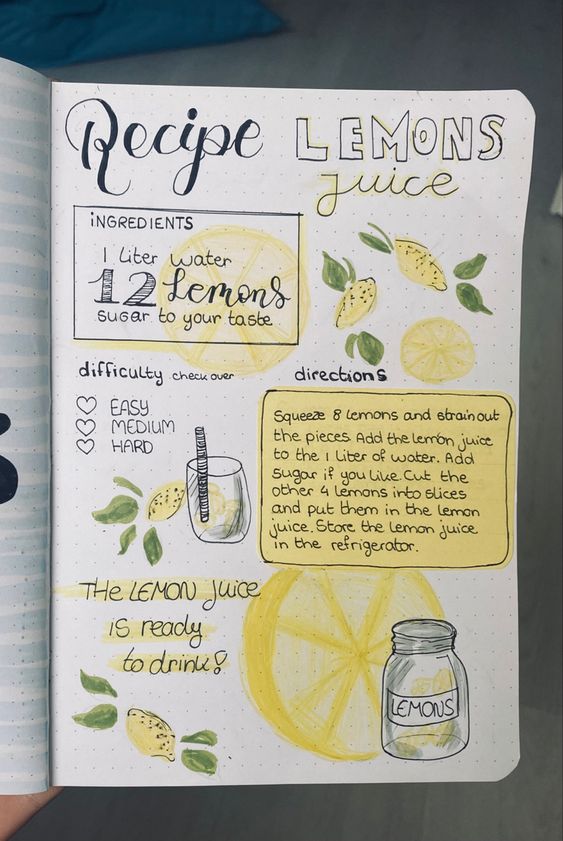 Recipe
LEMONS
juice
iNGREDIENTS
1 Liter water
12 Lemons
sugar to your taste
difficulty check over
EASY
MEDIUM
HARD
directions
Squeeze 8 lemons and strain out
the pieces. Add the lemon juice
to the 1 liter of water. Add
sugar if you like. Cut the
other 4 lemons into slices
and put them in the lemon
juice. Store the lemon juice
in the refrigerator.
THE LEMON juice
is ready
to drink!
LEMONS